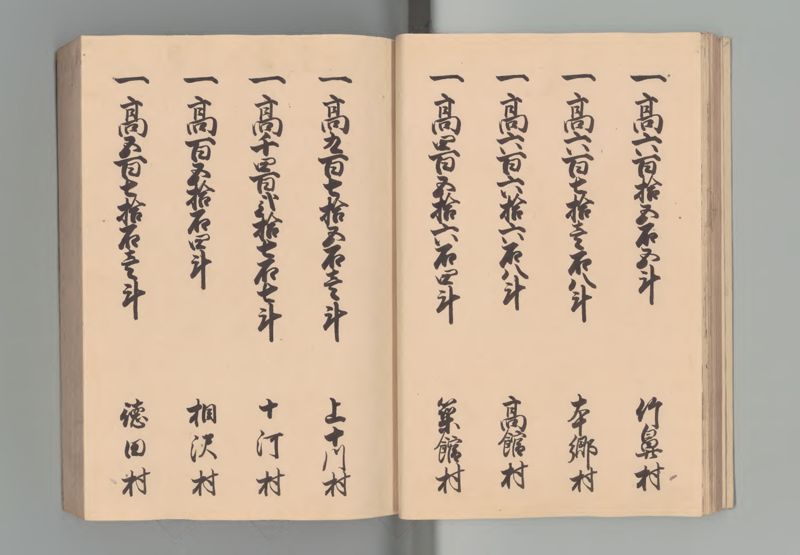 一 高六百拾五石五斗 竹鼻村
一 高六百七拾壱石八斗 本郷村
一 高六百六拾六石八斗 高館村
一 高四百五拾六石四斗 築館村
一 高九百七拾五石壱斗 上十川村
一 高千四百弐拾七石七斗 十河村
一 高百五拾石四斗 相沢村
一 高五百七拾石壱斗 徳田村